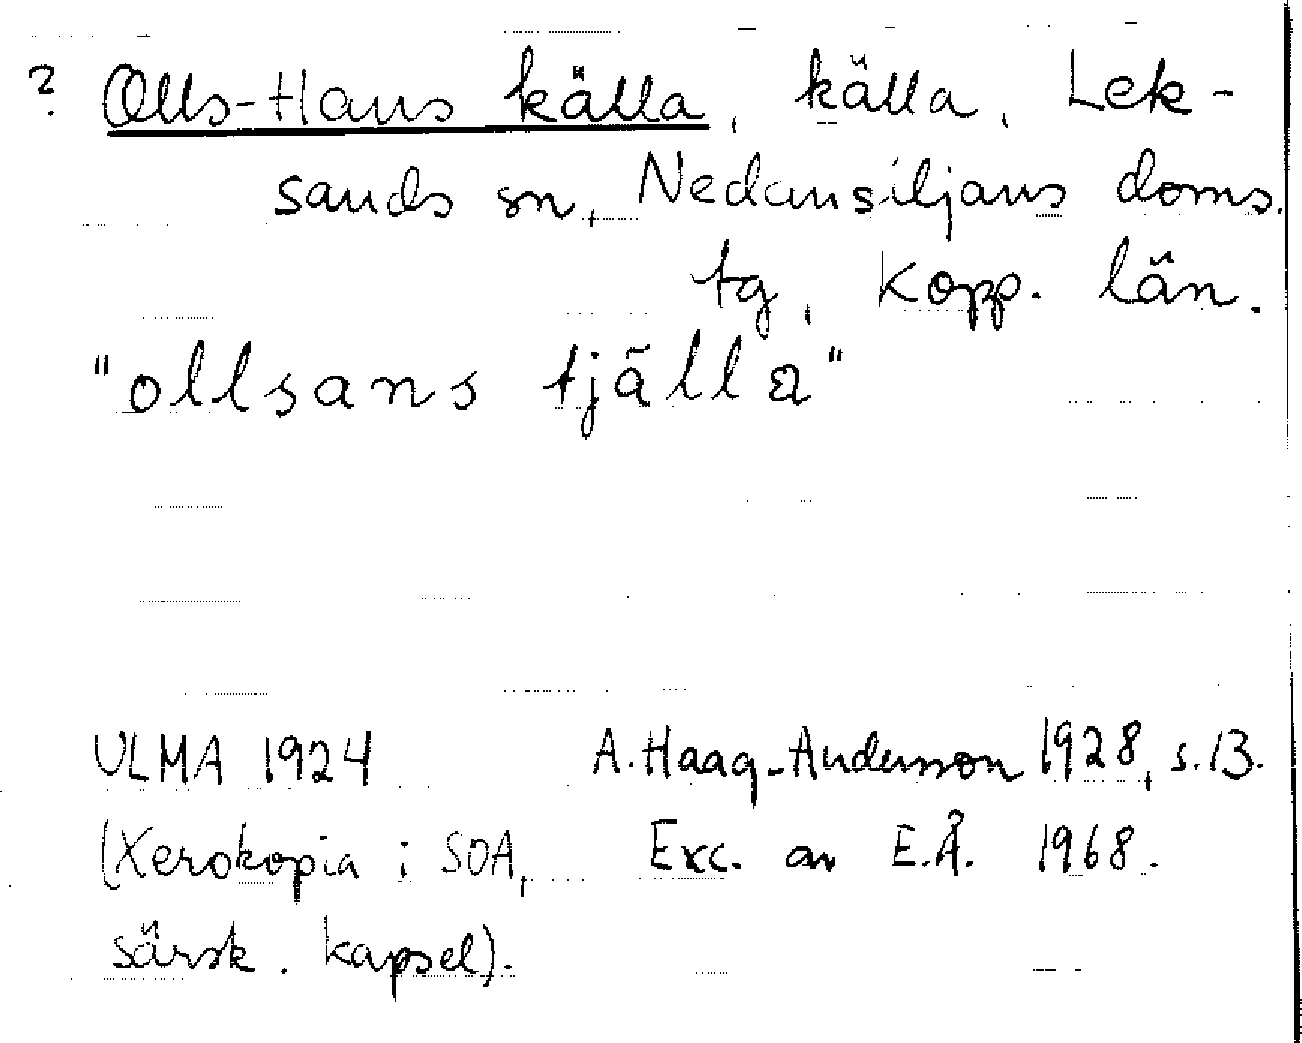 ? Olls-Hans källa, källa, Lek-
sands sn, Nedansiljans doms.
tg, Kopp. län.
"ollsans tjälla"
ULMA 1924 A. Haag-Anderson 1928, s. 13.
(Xerokopia i SOA, Exc. av E.Å. 1968.
särsk. kapsel).